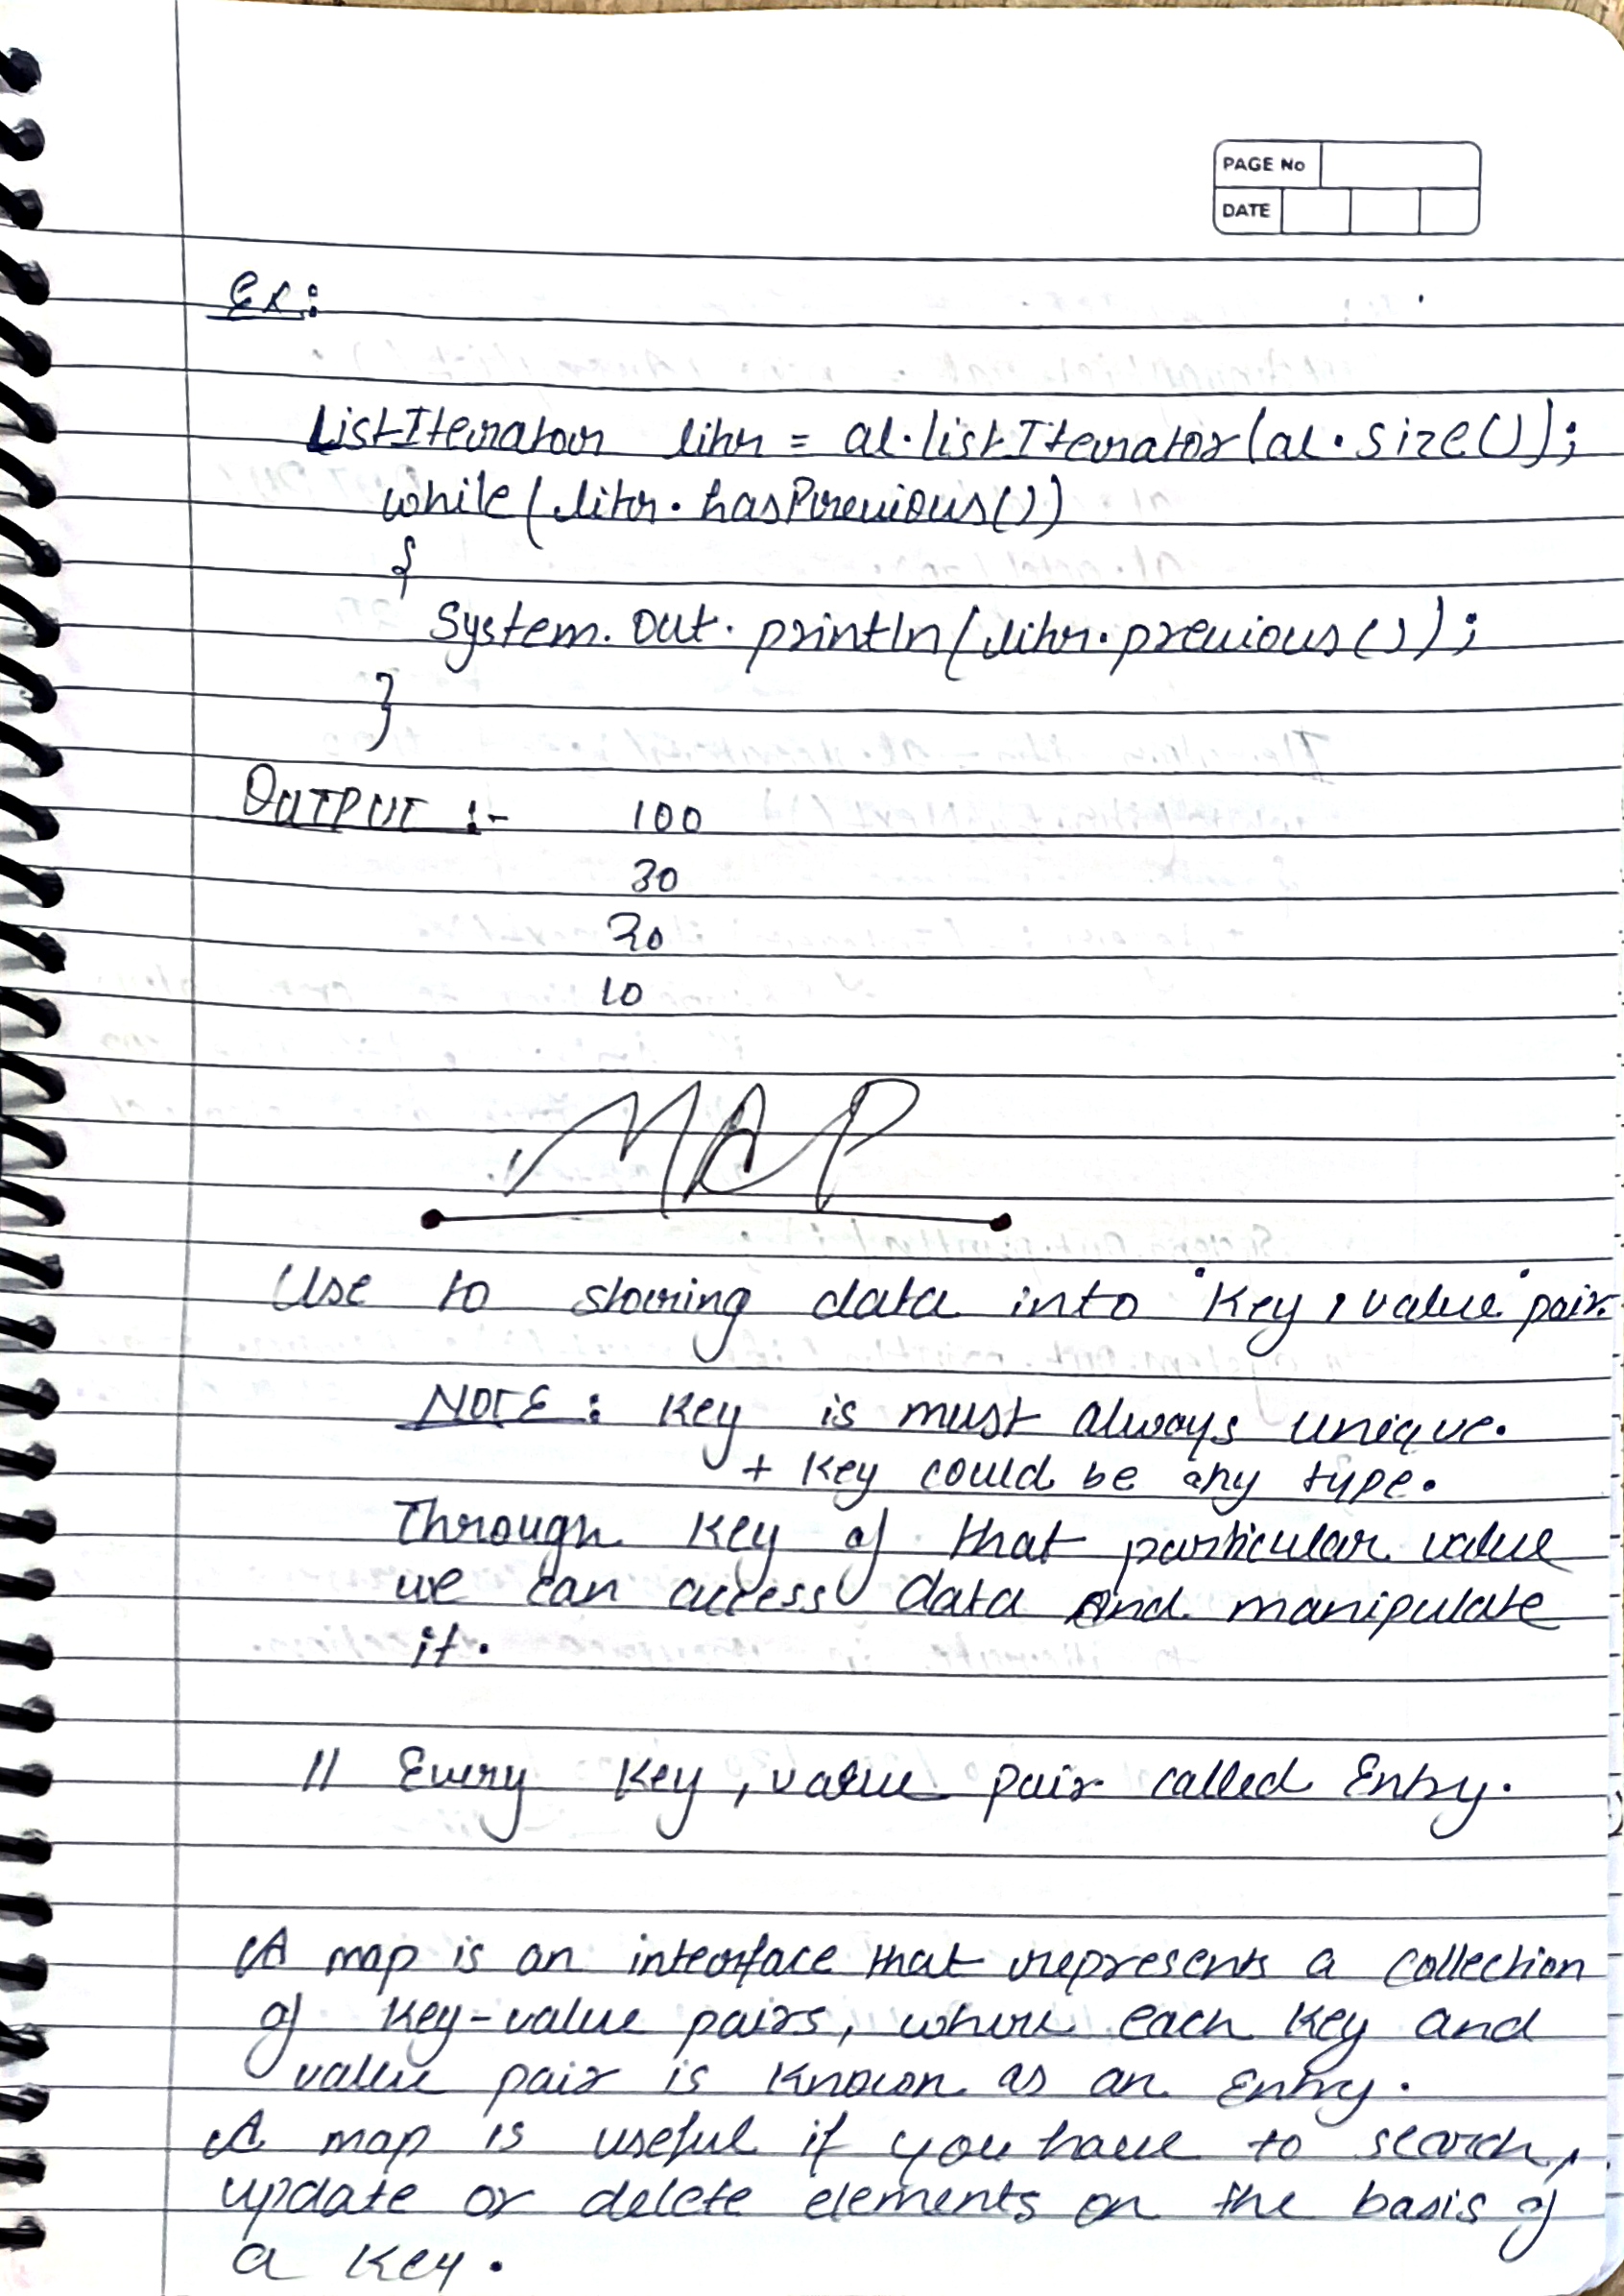 PAGE No
DATE
Ex:
ListIterator litr = al.listIterator(al.size());
while(litr.hasPrevious())
{
System.out.println(litr.previous());
}
OUTPUT :- 100
30
20
10
MAP
Use to storing data into "Key, value" pair.
NOTE: Key is must always unique.
+ Key could be any type.
Through Key of that particular value
we can access data and manipulate
it.
// Every Key, value pair called Entry.
A map is an interface that represents a collection
of key-value pairs, where each key and
value pair is known as an Entry.
A map is useful if you have to search,
update or delete elements on the basis of
a key.